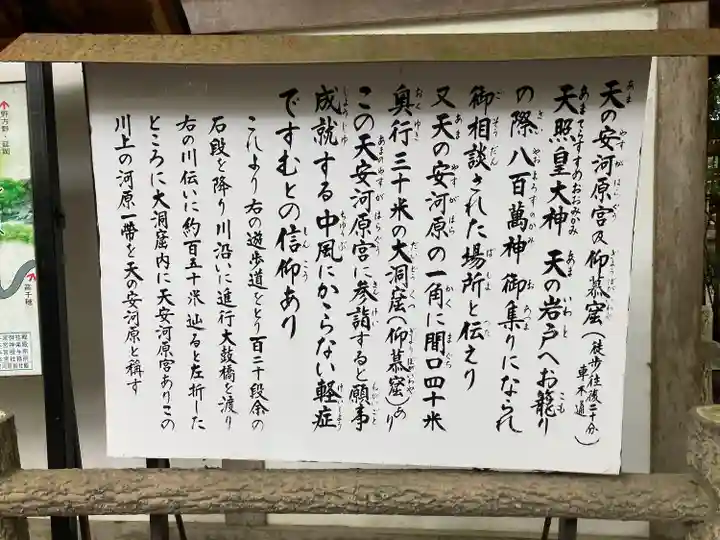 天の安河原宮及仰慕窟(徒歩往復二十分 車不通)
天照皇大神 天の岩戸へお籠り
の際 八百萬神御集りになられ
御相談された場所と伝えり
又天の安河原の一角に間口四十米
奥行三十米の大洞窟(仰慕窟)あり
この天安河原宮に参詣すると願事
成就する中風にかゝらない軽症
ですむとの信仰あり
これより右の遊歩道をとり百二十段余の
石段を降り川沿いに進行大鼓橋を渡り
右の川伝いに約百五十米辿ると左折した
ところに大洞窟内に天安河原宮ありこの
川上の河原一帯を天の安河原と称す
高千穂